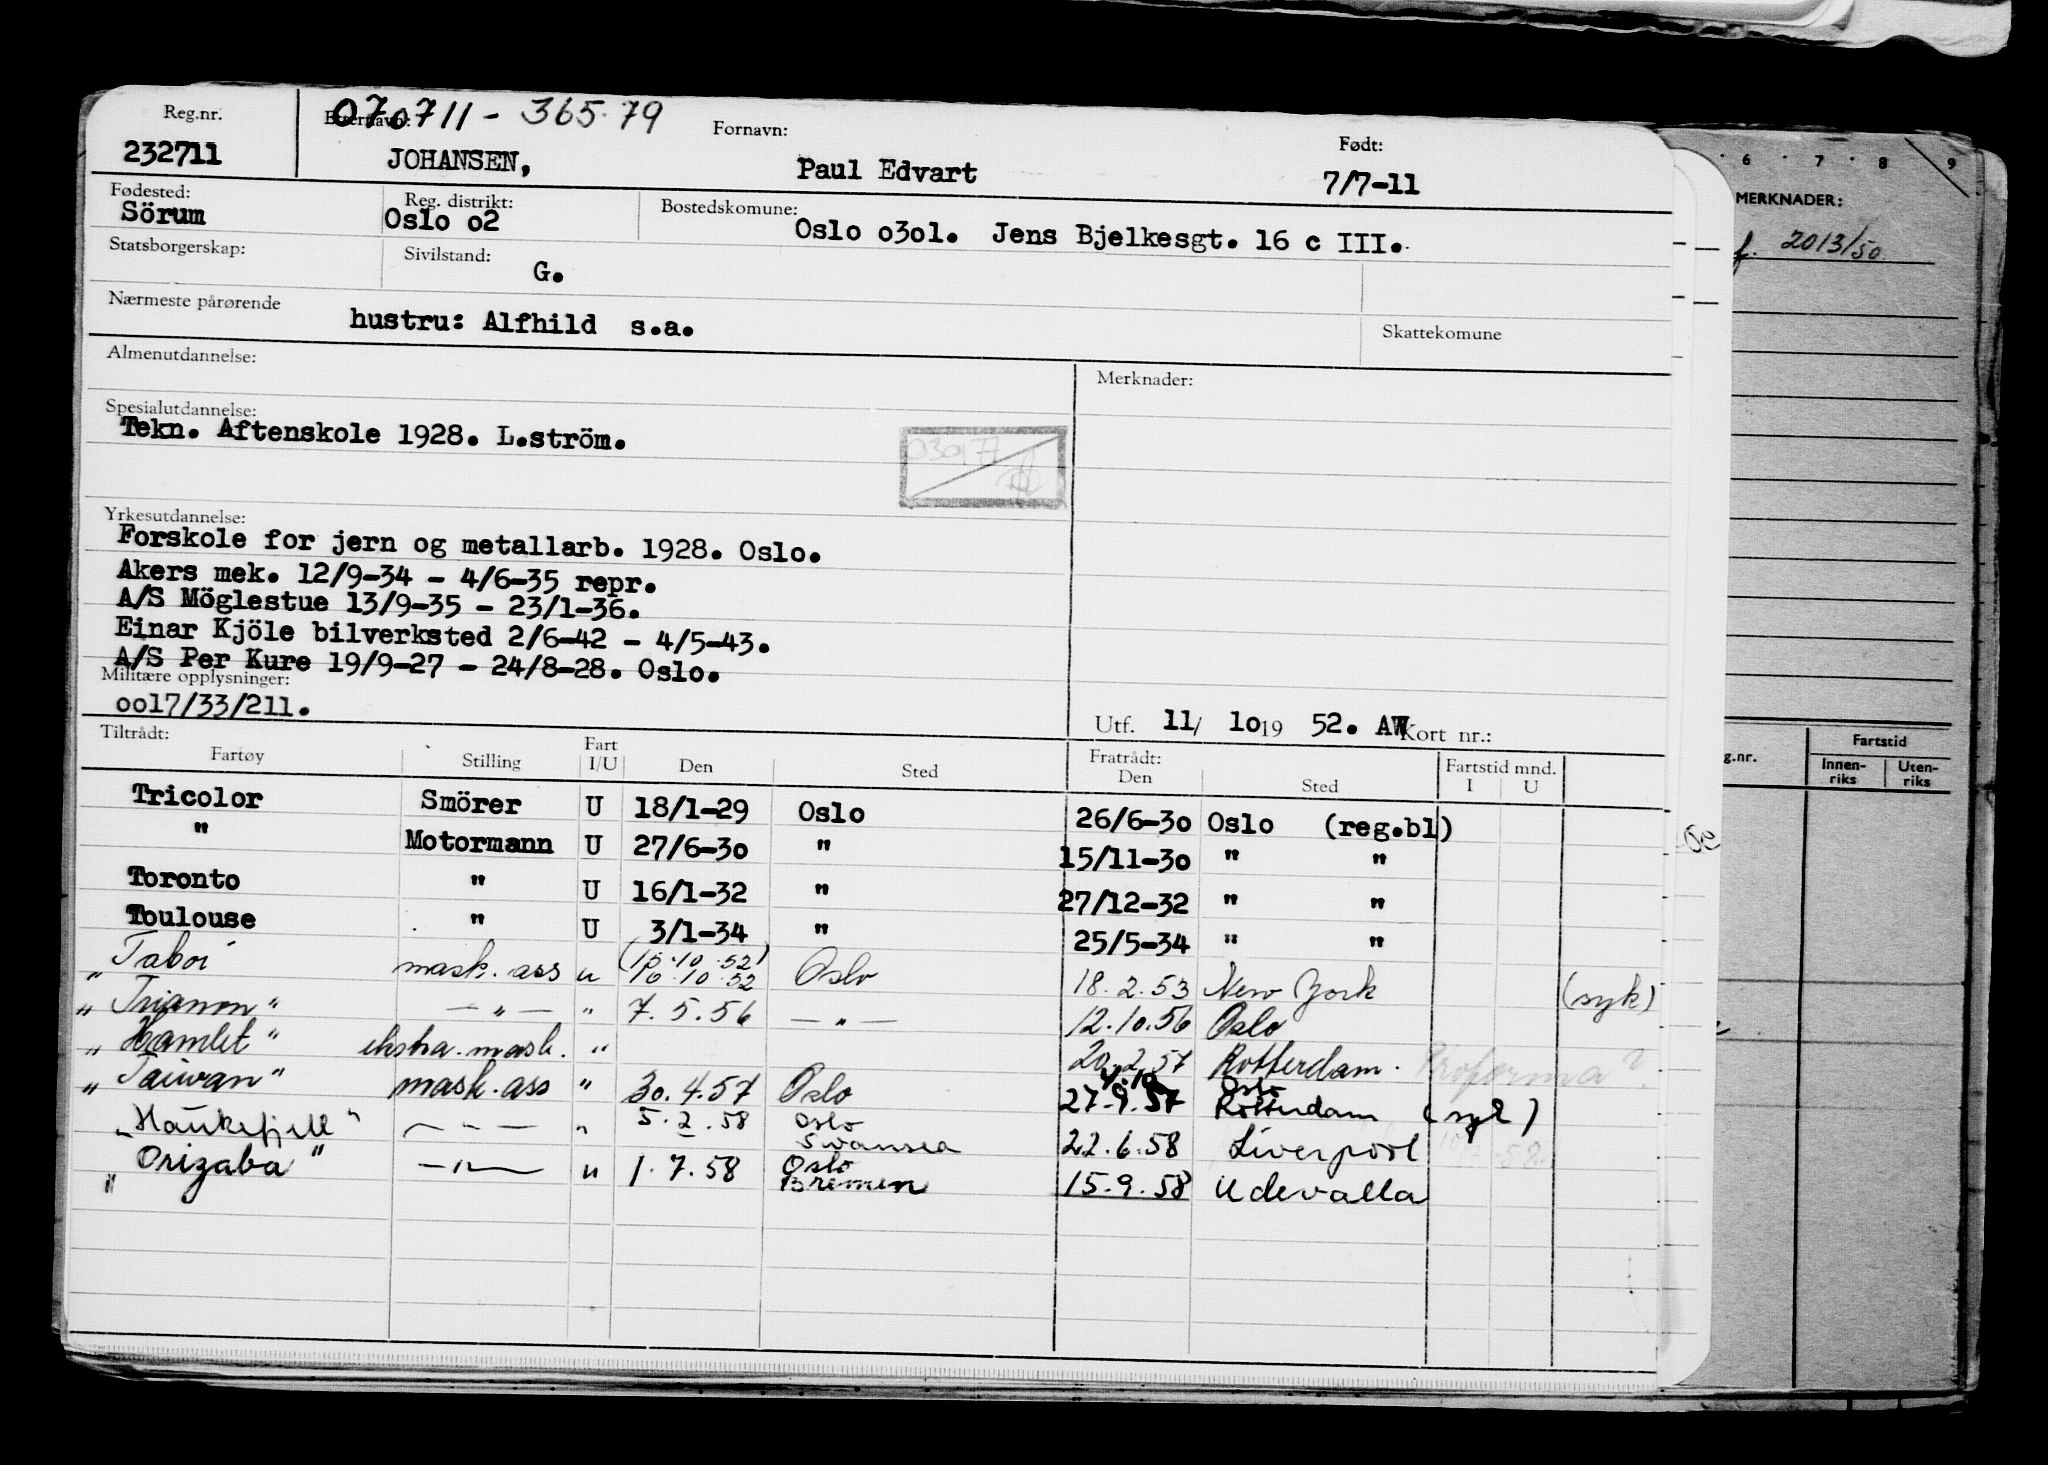 Reg.nr. Etternavn: 070711 - 365.79 Fornavn: Født:
232711 JOHANSEN, Paul Edvart 7/7-11
Fødested: Reg. distrikt: Bostedskomune:
Sörum Oslo o2 Oslo o3o1. Jens Bjelkesgt. 16 c III.
Statsborgerskap: Sivilstand: G.
Nærmeste pårørende hustru: Alfhild s.a. Skattekomune
Almenutdannelse: Merknader:
Spesialutdannelse:
Tekn. Aftenskole 1928. L.ström.
030177
Yrkesutdannelse:
Forskole for jern og metallarb. 1928. Oslo.
Akers mek. 12/9-34 - 4/6-35 repr.
A/S Möglestue 13/9-35 - 23/1-36.
Einar Kjöle bilverksted 2/6-42 - 4/5-43.
A/S Per Kure 19/9-27 - 24/8-28. Oslo.
Militære opplysninger:
oo17/33/211.
Utf. 11/ 1o 19 52. AW Kort nr.:
Tiltrådt: Fratrådt:
Fartøy Stilling Fart I/U Den Sted Den Sted Fartstid mnd. I U
Tricolor Smörer U 18/1-29 Oslo 26/6-3o Oslo (reg.bl)
" Motormann U 27/6-3o " 15/11-3o " "
Toronto " U 16/1-32 " 27/12-32 " "
Toulouse " U 3/1-34 " 25/5-34 " "
(15.10.52)
" Taboi mask. ass u 16.10.52 Oslo 18.2.53 New York (syk)
" Trianon " — " — " 7.5.56 — " — 12.10.56 Oslo
" Hamlet " ekstra. mask. " 20.2.57 Rotterdam. Proforma?
4.10 Oslo
" Taiwan " mask. ass " 30.4.57 Oslo 27.9.57 Rotterdam (syk)
" Haukefjell " — " — " 5.2.58 Oslo Swansea 22.6.58 Liverpool
" Orizaba " — " — u 1.7.58 Oslo Bremen 15.9.58 Udevalla
6 7 8 9
MERKNADER:
f. 2013/50
g.nr. Fartstid
Innen-riks Uten-riks